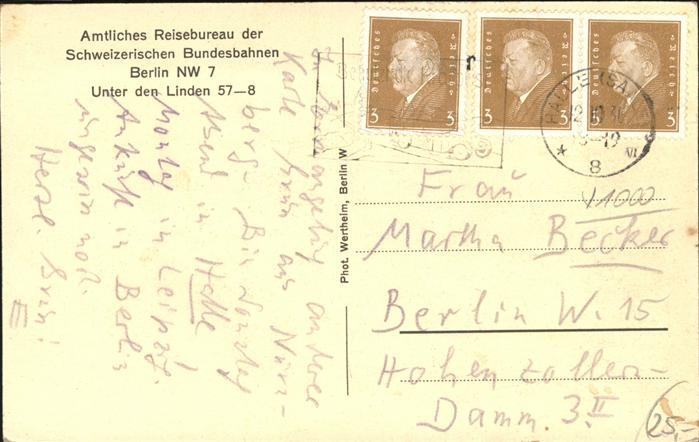 Amtliches Reisebureau der
Schweizerischen Bundesbahnen
Berlin NW 7
Unter den Linden 57—8
anderer
Karte Grün aus Nürn-
berg. Bin Sonntag
Abend in Halle
Montag in Leipzig.
Ankunft in Berlin
ungewiss noch.
Herzl. Gruss!
III
Phot. Wertheim, Berlin W
Deutsches Reich
3 3
Deutsches Reich
3 3
Deutsches Reich
3 3
HALLE (SAALE)
* 8 VI
Frau
V1000
Martha Becker
Berlin W. 15
Hohenzollern-
Damm. 3 II
25,-